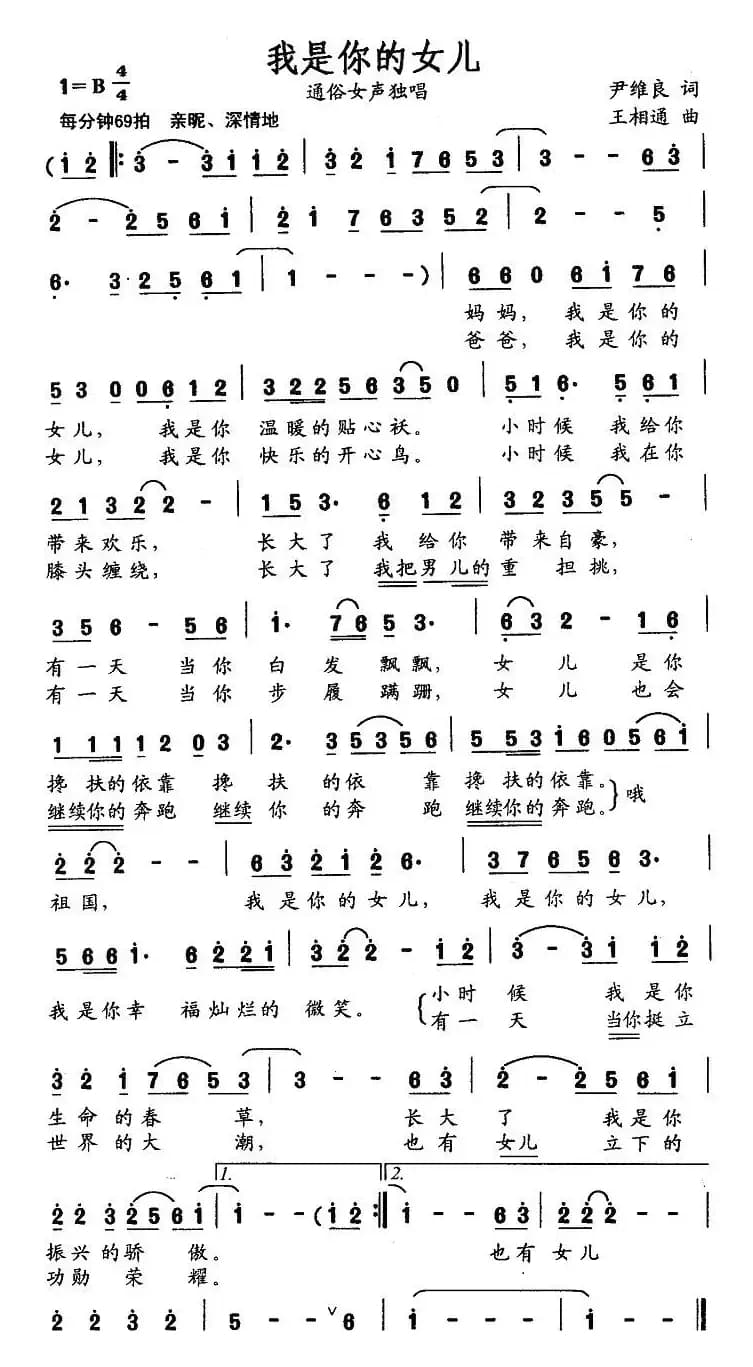 我是你的女儿
1=B 4/4
通俗女声独唱
尹维良 词
每分钟69拍 亲昵、深情地
王相通 曲
(1 2 ‖: 3 - 3 1 1 2 | 3 2 1 7 6 5 3 | 3 - - 6 3 |
2 - 2 5 6 1 | 2 1 7 6 3 5 2 | 2 - - 5 |
6· 3 2 5 6 1 | 1 - - -) | 6 6 0 6 1 7 6 |
妈妈, 我是你的
爸爸, 我是你的
5 3 0 0 6 1 2 | 3 2 2 5 6 3 5 0 | 5 1 6· 5 6 1 |
女儿, 我是你 温暖的贴心袄。 小时候 我给你
女儿, 我是你 快乐的开心鸟。 小时候 我在你
2 1 3 2 2 - | 1 5 3· 6 1 2 | 3 2 3 5 5 - |
带来欢乐, 长大了 我给你 带来自豪,
膝头缠绕, 长大了 我把男儿的重担挑,
3 5 6 - 5 6 | 1· 7 6 5 3· | 6 3 2 - 1 6 |
有一天 当你 白发飘飘, 女儿 是你
有一天 当你 步履蹒跚, 女儿 也会
1 1 1 1 2 0 3 | 2· 3 5 3 5 6 | 5 5 3 1 6 0 5 6 1 |
搀扶的依靠 搀扶的依靠 搀扶的依靠。
继续你的奔跑 继续你的奔跑 继续你的奔跑。 } 哦
2 2 2 - - | 6 3 2 1 2 6· | 3 7 6 5 6 3· |
祖国, 我是你的女儿, 我是你的女儿,
5 6 6 1· 6 2 2 1 | 3 2 2 - 1 2 | 3 - 3 1 1 2 |
我是你幸福灿烂的微笑。 { 小时候 我是你
有一天 当你挺立
3 2 1 7 6 5 3 | 3 - - 6 3 | 2 - 2 5 6 1 |
生命的春草, 长大了 我是你
世界的大潮, 也有女儿 立下的
1. 2.
2 2 3 2 5 6 1 | 1 - - (1 2 :‖ 1 - - 6 3 | 2 2 2 - - |
振兴的骄傲。 也有女儿
功勋荣耀。
2 2 3 2 | 5 - - ∨ 6 | 1 - - - | 1 - - - ‖